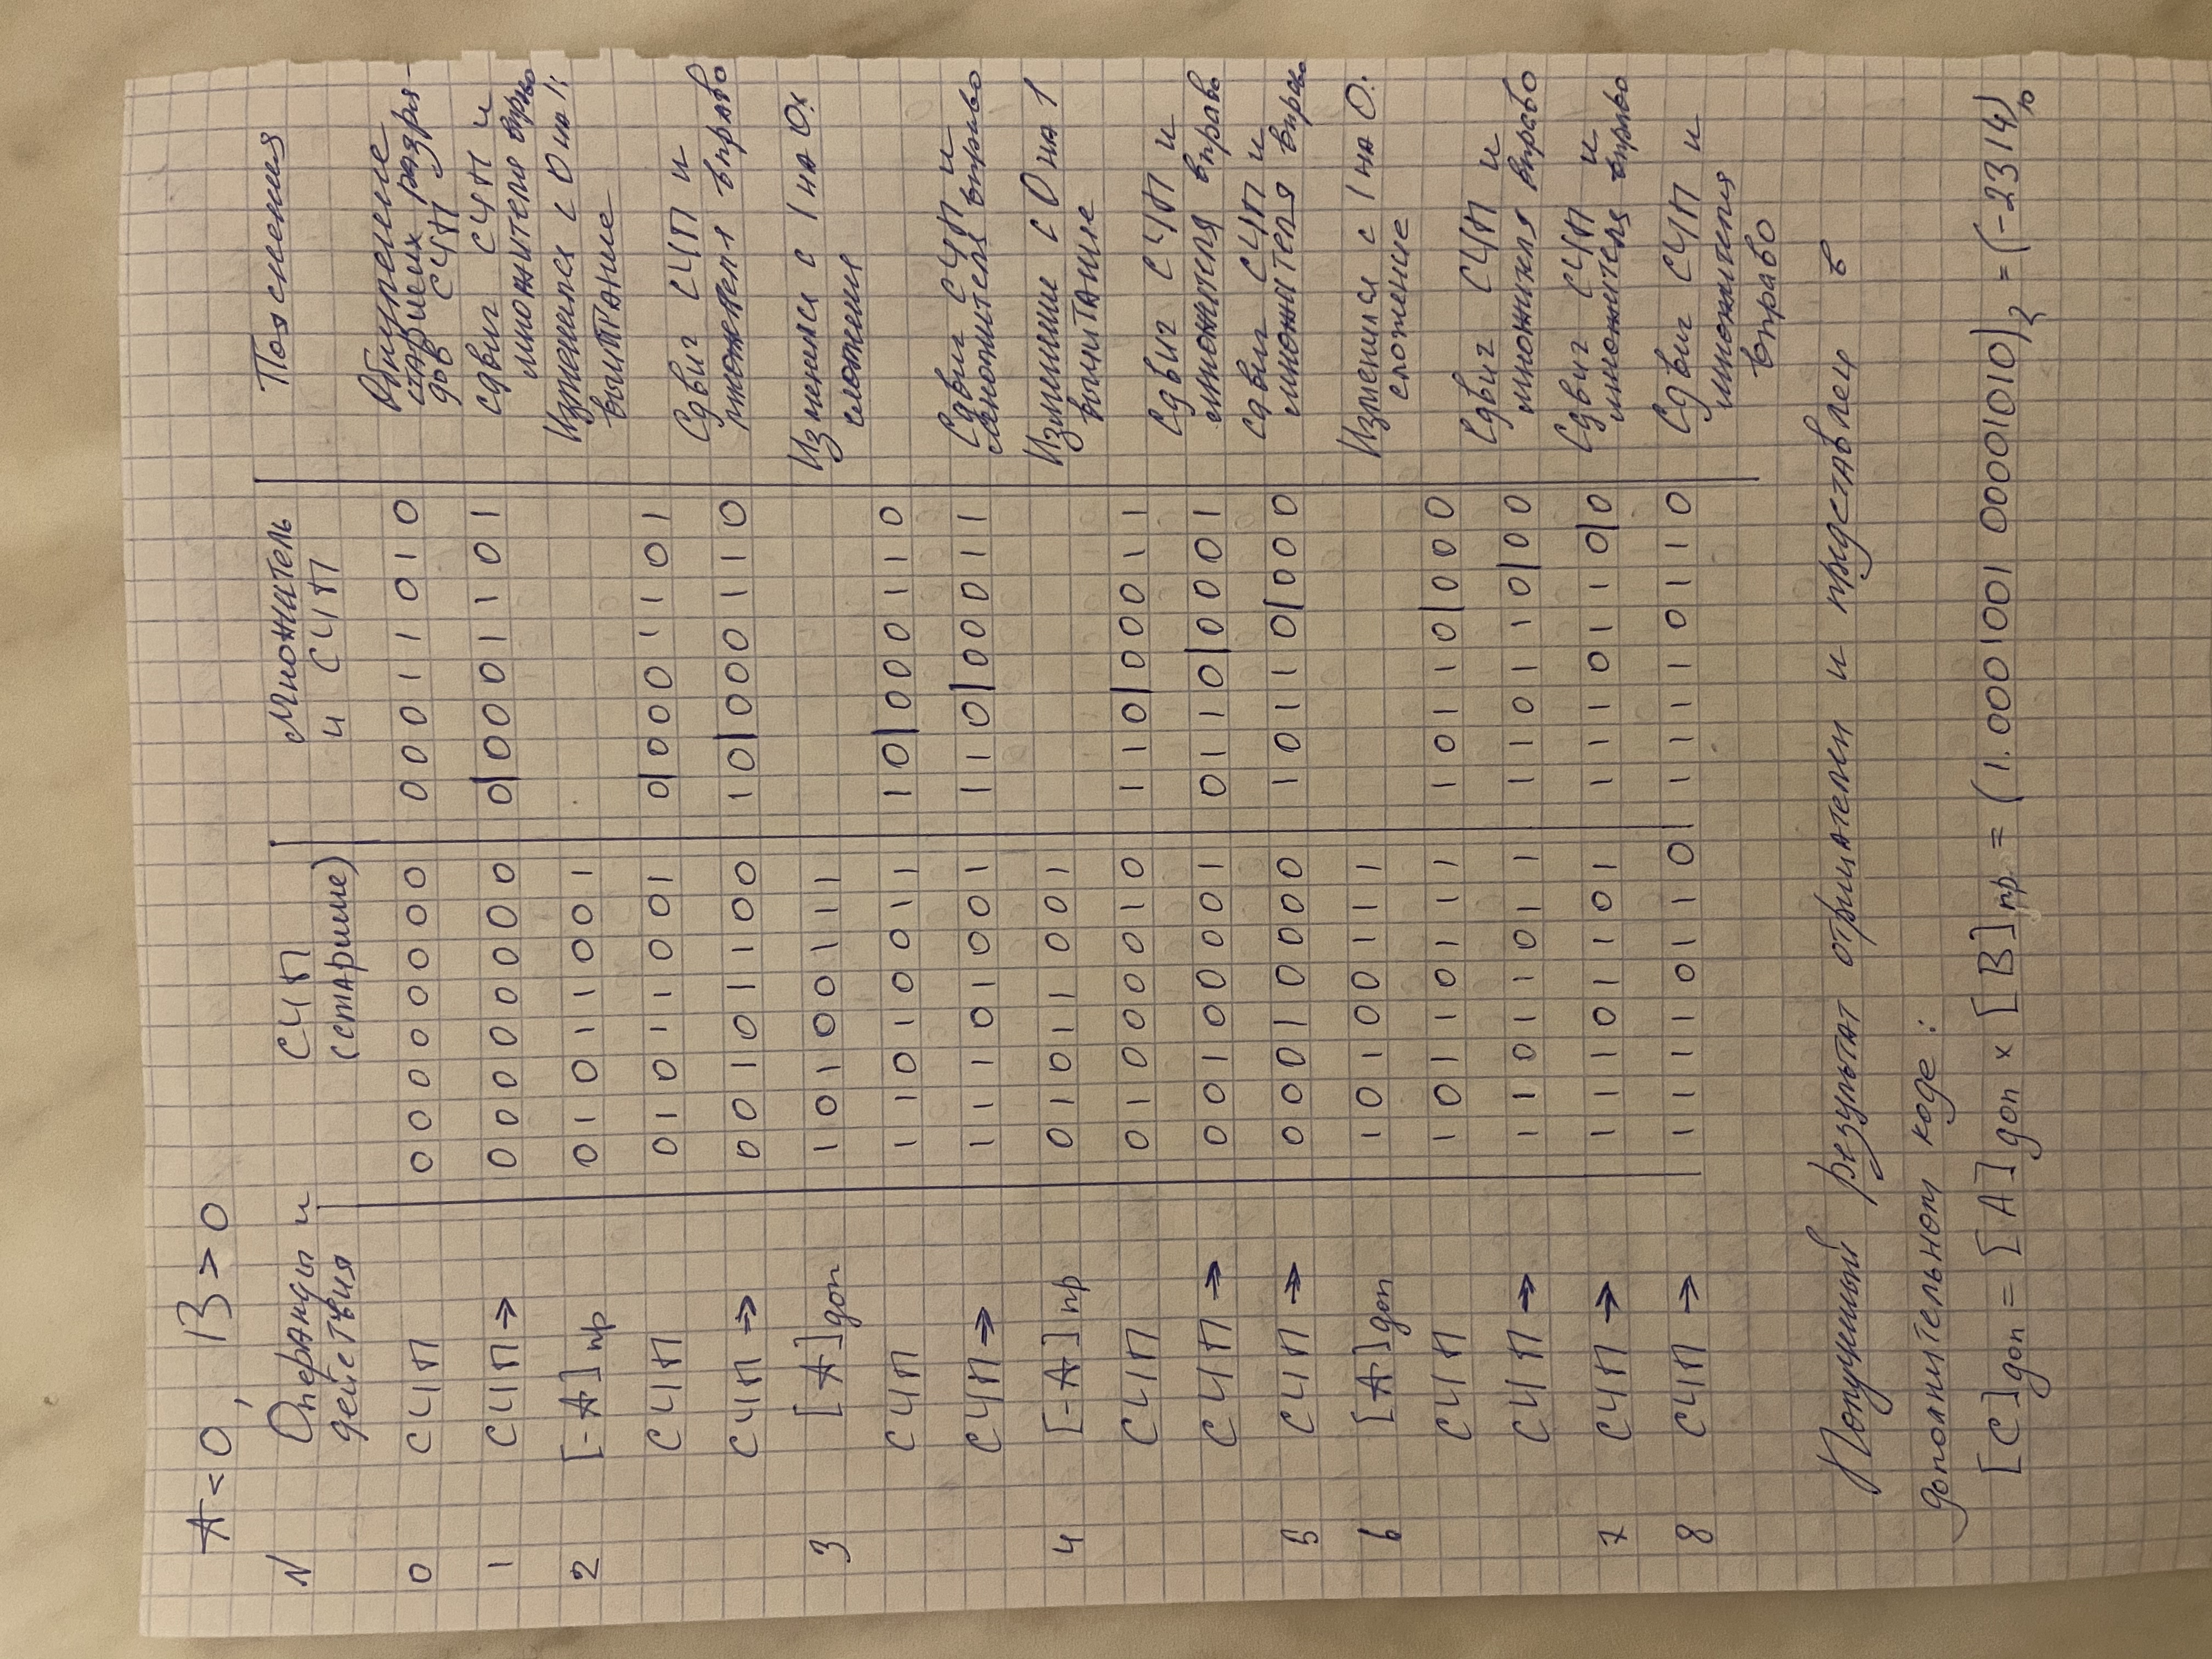 A < 0, B > 0
N Операнды и действия СЧП (старшие) Множитель и СЧП Пояснения
0 СЧП 0 0 0 0 0 0 0 0 0 0 0 1 1 0 1 0 Обнуление старших разрядов СЧП
1 СЧП → 0 0 0 0 0 0 0 0 0|0 0 0 1 1 0 1 сдвиг СЧП и множителя вправо
2 [-A]пр 0 1 0 1 1 0 0 1 Изменился с 0 на 1: вычитание
СЧП 0 1 0 1 1 0 0 1 0|0 0 0 1 1 0 1
СЧП → 0 0 1 0 1 1 0 0 1 0|0 0 0 1 1 0 Сдвиг СЧП и множителя вправо
3 [A]доп 1 0 1 0 0 1 1 1 Изменился с 1 на 0: сложение
СЧП 1 1 0 1 0 0 1 1 1 0|0 0 0 1 1 0
СЧП → 1 1 1 0 1 0 0 1 1 1 0|0 0 0 1 1 Сдвиг СЧП и множителя вправо
4 [-A]пр 0 1 0 1 1 0 0 1 Изменение с 0 на 1 вычитание
СЧП 0 1 0 0 0 0 1 0 1 1 0|0 0 0 1 1
СЧП → 0 0 1 0 0 0 0 1 0 1 1 0|0 0 0 1 Сдвиг СЧП и множителя вправо
5 СЧП → 0 0 0 1 0 0 0 0 1 0 1 1 0|0 0 0 Сдвиг СЧП и множителя вправо
6 [A]доп 1 0 1 0 0 1 1 1 Изменился с 1 на 0: сложение
СЧП 1 0 1 1 0 1 1 1 1 0 1 1 0|0 0 0
СЧП → 1 1 0 1 1 0 1 1 1 1 0 1 1 0|0 0 Сдвиг СЧП и множителя вправо
7 СЧП → 1 1 1 0 1 1 0 1 1 1 1 0 1 1 0|0 Сдвиг СЧП и множителя вправо
8 СЧП → 1 1 1 1 0 1 1 0 1 1 1 1 0 1 1 0 Сдвиг СЧП и множителя вправо
Полученный результат отрицателен и представлен в
дополнительном коде:
[C]доп = [A]доп × [B]пр = (1.0001001 00001010)2 = (-2314)10